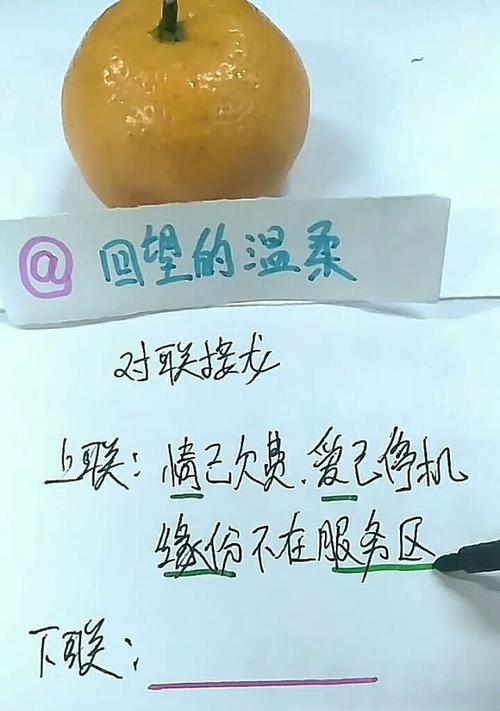 @回望的温柔
对联接龙
上联：情已欠费、爱已停机
缘份不在服务区
下联：